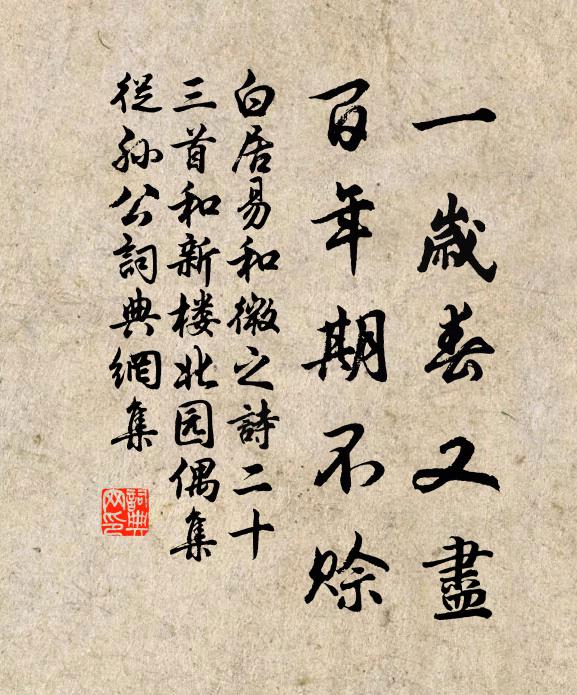 一歲春又盡
百年期不賒
白居易和微之詩二十
三首和新楼北园偶集
從孙公詞典網集
詞典网印